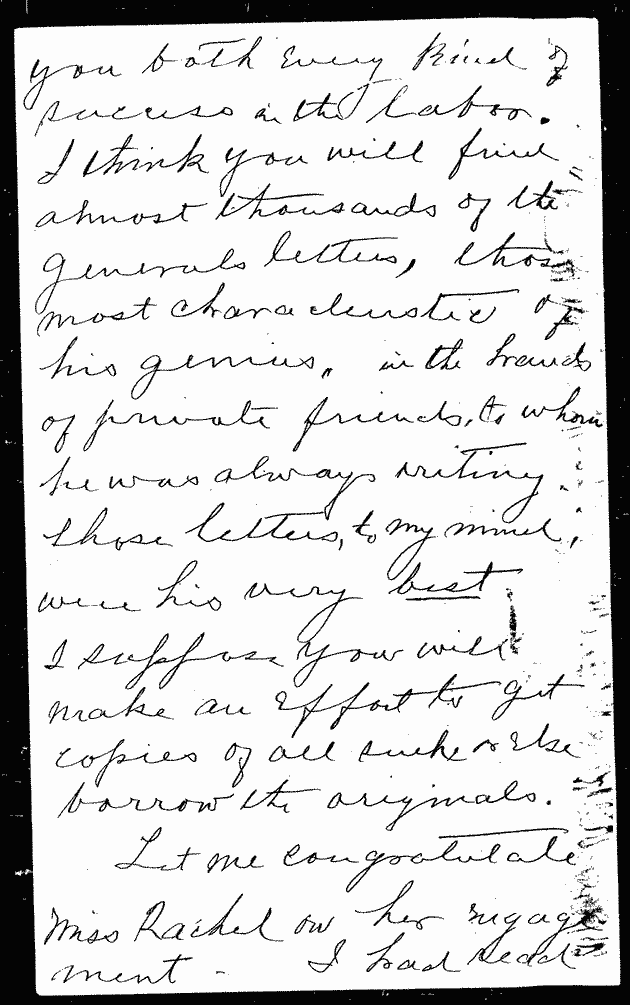 you both every kind of
success in the labor.
I think you will find
almost thousands of the
generals letters, those
most characteristic of
his genius, in the hands
of private friends, to whom
he was always writing.
those letters, to my mind,
were his very best
I suppose you will
make an effort to get
copies of all such or else
borrow the originals.
Let me congratulate
Miss Rachel on her engage
ment - I had read